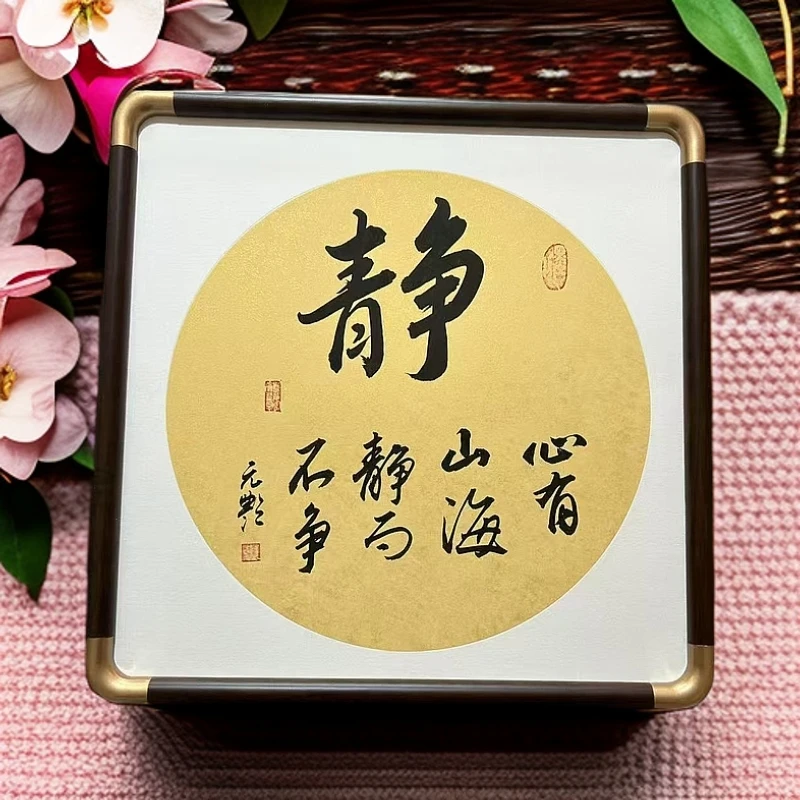 静
心有
山海
静而
不争
元艷